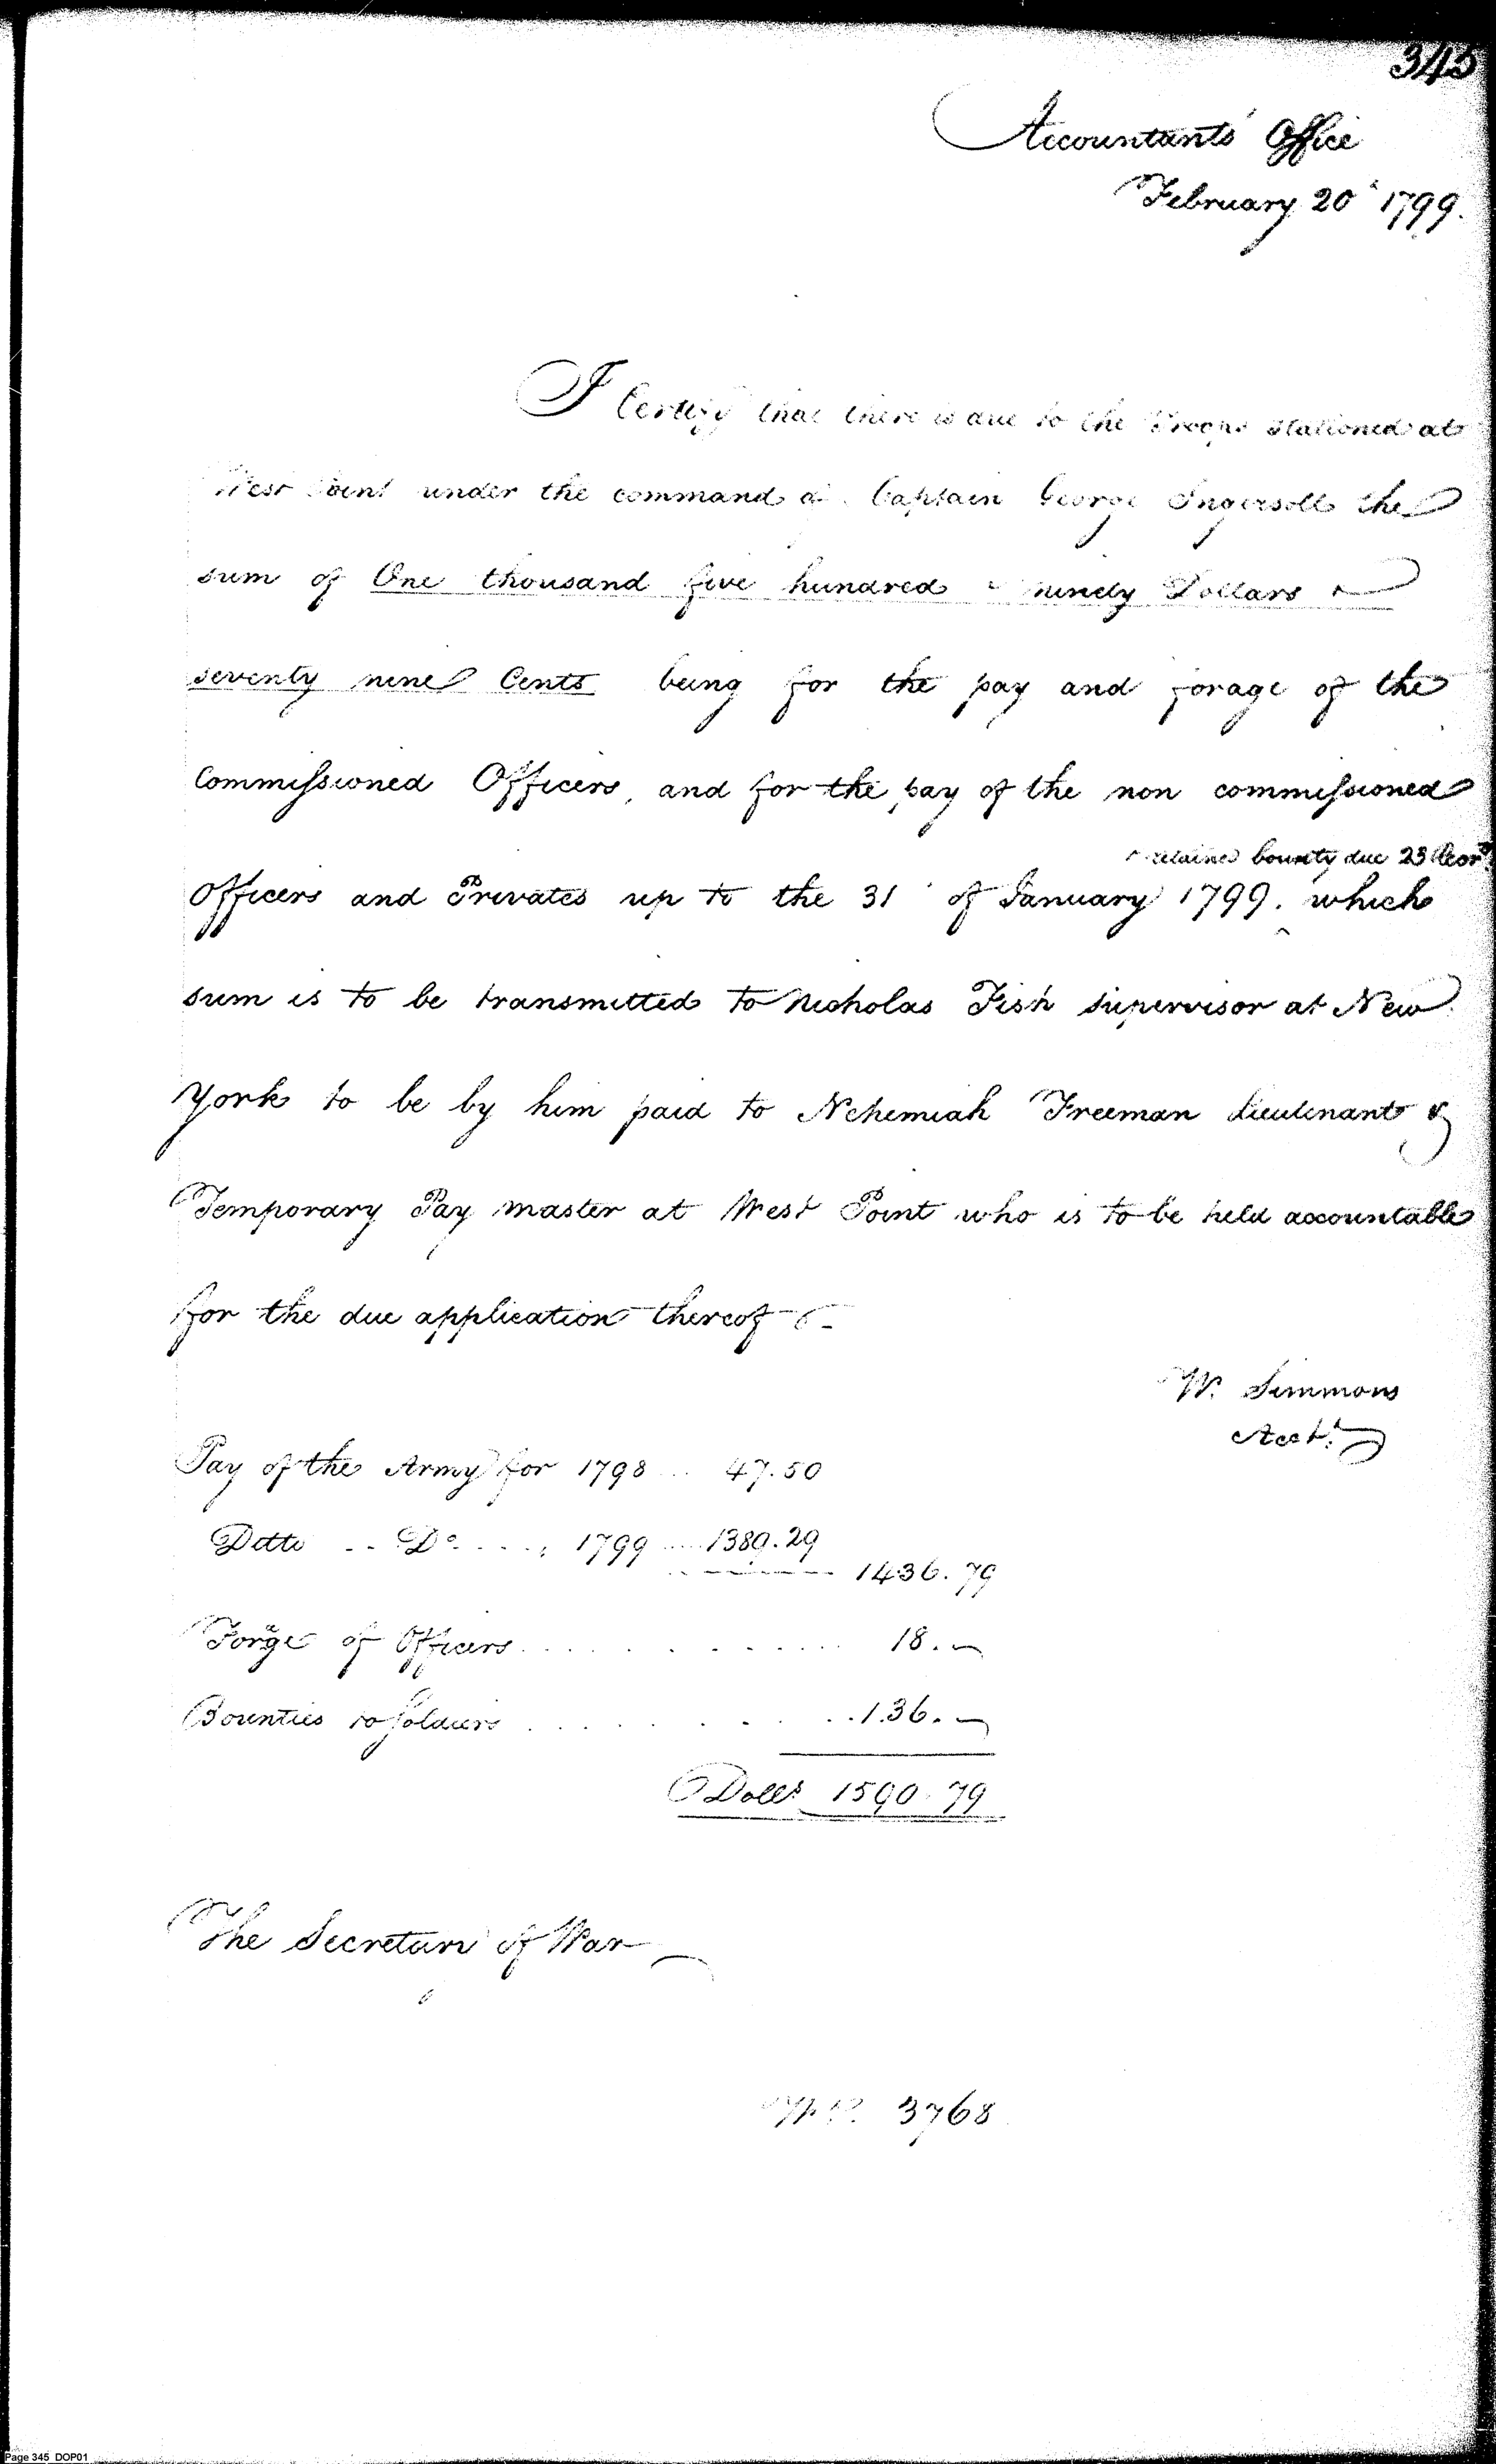 345
Accountants' Office
February 20 1799.
I Certify that there is due to the Troops stationed at
West Point under the command of Captain George Ingersoll the
sum of One thousand five hundred & ninety Dollars &
seventy nine Cents being for the pay and forage of the
Commissioned Officers, and for the pay of the non commissioned
& retained bounty due 23
Officers and Privates up to the 31 of January 1799. ‸ which
sum is to be transmitted to Nicholas Fish supervisor at New
York to be by him paid to Nehemiah Freeman Lieutenant &
Temporary Pay master at West Point who is to be held accountable
for the due application thereof
W. Simmons
Acct.
Pay of the Army for 1798 .. 47.50
Ditto .. Do. .... 1799 .... 1389.29
1436.79
Forge of Officers ............. 18.—
Bounties to soldiers ............. 136.—
Dolls 1590.79
The Secretary of War
3768
Page 345 DOP01